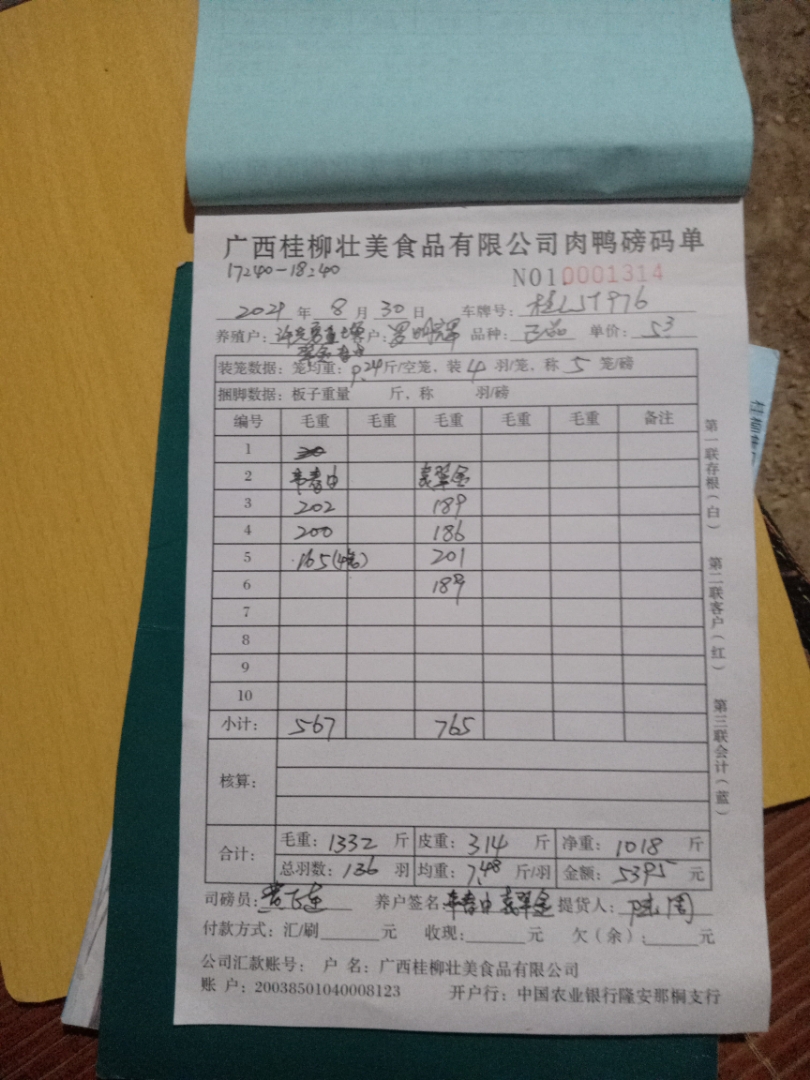 广西桂柳壮美食品有限公司肉鸭磅码单
17:40-18:40
NO10001314
2021年8月30日 车牌号:
养殖户: 客户:罗明辉 品种:正品 单价:53
装笼数据:笼均重:9.24斤/空笼,装4羽/笼,称5笼/磅
捆脚数据:板子重量 斤,称 羽/磅
编号 毛重 毛重 毛重 毛重 毛重 备注
1
2
3 202 189
4 200 186
5 165(4笼) 201
6 189
7
8
9
10
小计: 567 765
核算:
合计: 毛重:1332斤 皮重:314斤 净重:1018斤
总羽数:136羽 均重:7.48斤/羽 金额:5395元
司磅员: 养户签名 提货人:
付款方式:汇/刷 元 收现: 元 欠(余): 元
公司汇款账号: 户 名:广西桂柳壮美食品有限公司
账 户:20038501040008123 开户行:中国农业银行隆安那桐支行
第一联存根(白) 第二联客户(红) 第三联会计(蓝)